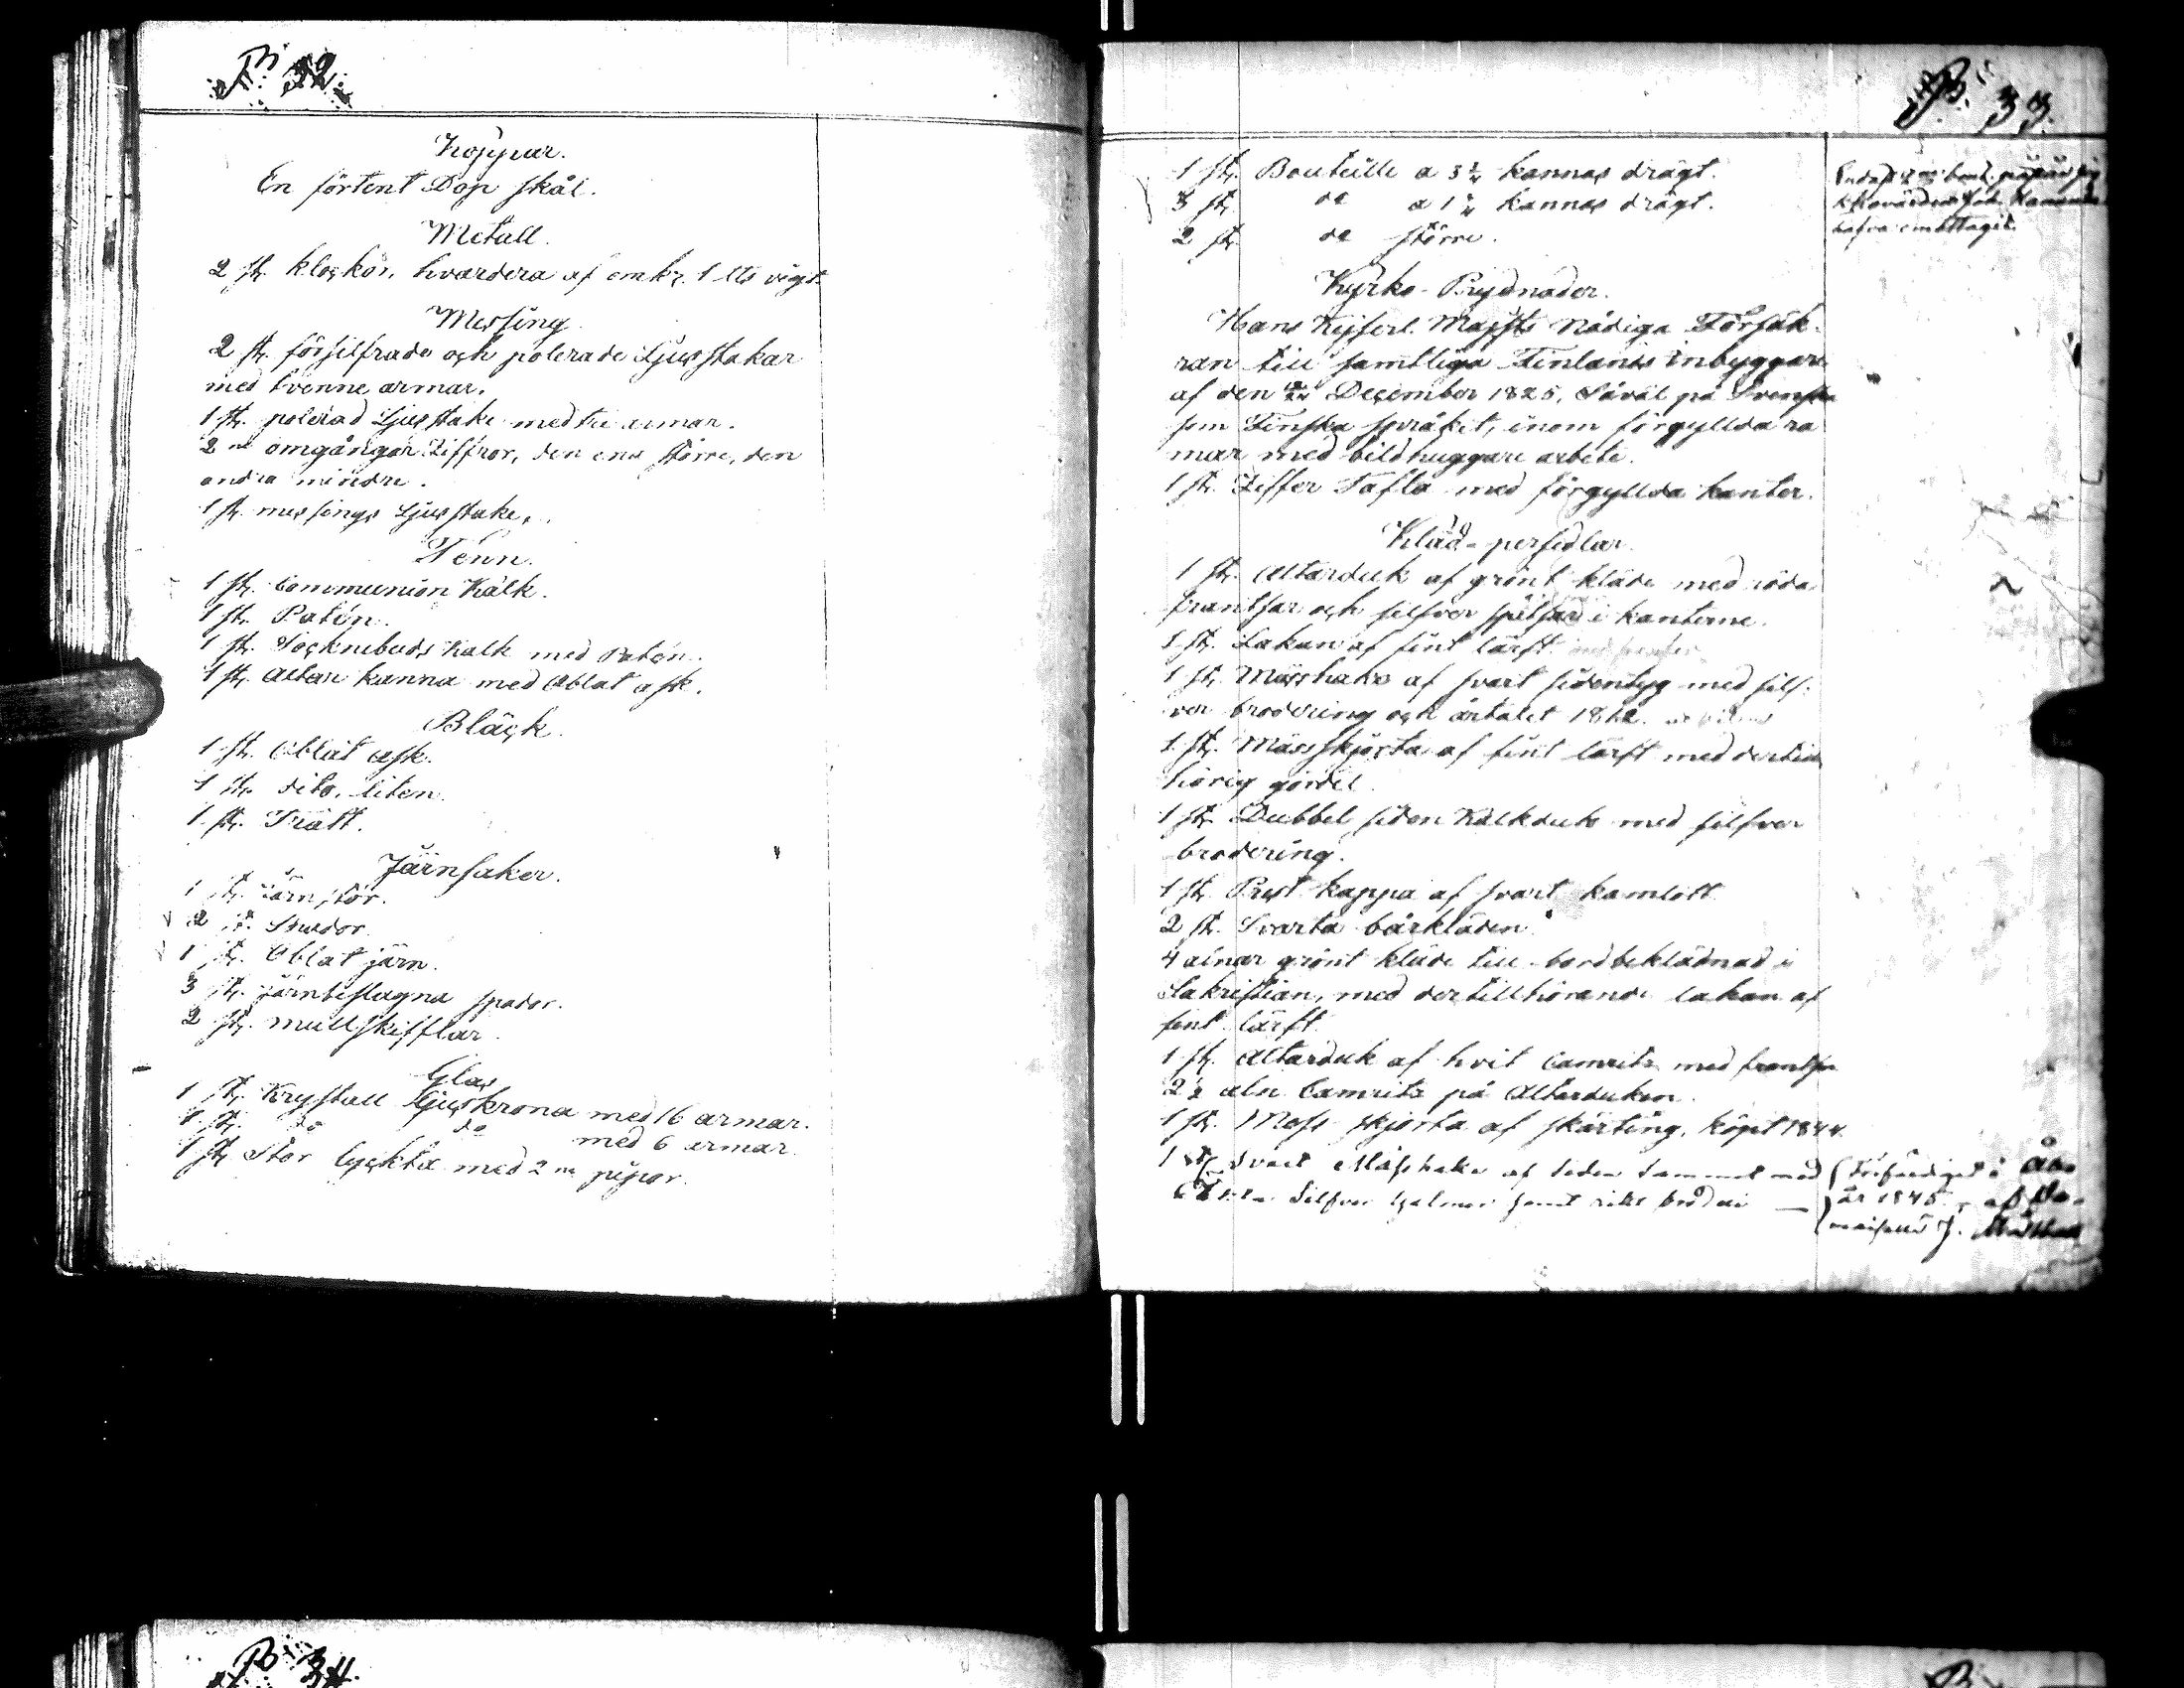 B. 32.
Koppar.
En förtent Dop skål.
Metall.
2 st. klockor, hvardera af omkr. 1 Lts vigt.
Messing
2 st. försilfrade och polerade Ljusstakar
med tvenne armar.
1 st. polerad Ljusstake med tre armar.
2 ne omgångar Ziffror, den ena större, den
andra mindre.
1 st. messings Ljusstake.
Tenn.
1 st. Communion Kalk.
1 st. Patén.
1 st. Sockneb­uds Kalk med Patén.
1 st. Altar kanna med Oblat ask.
Bläck.
1 st. Oblat ask.
1 st. dito, liten.
1 st. Tratt.
Järnsaker.
1 st. Järnstör.
2 st.
1 st. Oblat järn.
3 st. järnbeslagna spador.
2 st. mullskifflar.
Glas
1 st. Krystall Ljuskrona med 16 armar.
1 st. do do med 6 armar
1 st. Stor Lyckta med 2 ne pipor.
B. 33.
1 st. Bouteille a 3 kannas drägt.
3 st. do a 1 kannas drägt.
2 st. do större.
hafva emottagit.
Kyrko-Prydnader.
Hans Kejserl. Majsts Nådiga Försäk-
ran till samtliga Finlands inbyggare
af den December 1825, Såväl på Svenska
som Finska språket, inom förgyllda ra
mar med bildhuggare arbete.
1 st. Ziffer Tafla med förgyllda kanter.
Kläd-persedlar.
1 st. Altarduk af grönt kläde med röda
frantsar och silfver spitsar i kanterne.
1 st. Lakan af fint lärft
1 st. Mässhake af svart sidentyg med silf-
ver brodering och årtalet 1812.
1 st. Mässskjorta af fint lärft med dertill
hörig gördel.
1 st. Dubbel siden Kalkduk med silfver
brodering.
1 st. Prest kappa af svart kamlott
2 st. Svarta bårkläden
4 alnar grönt kläde till bordbeklädnad i
Sakristian, med dertillhörande lakan af
fint lärft.
1 st. Altarduk af hvit Camrits med frantsar
2½ aln Camrits på Altarduken.
1 st. Mess skjorta af skärting, köpt 1844.
1 st. Svart Mässhake af siden Sammet med
Silfver galoner samt rikt broderi
Förfärdigad i Åbo
år 1845 af
B. 34.
B.